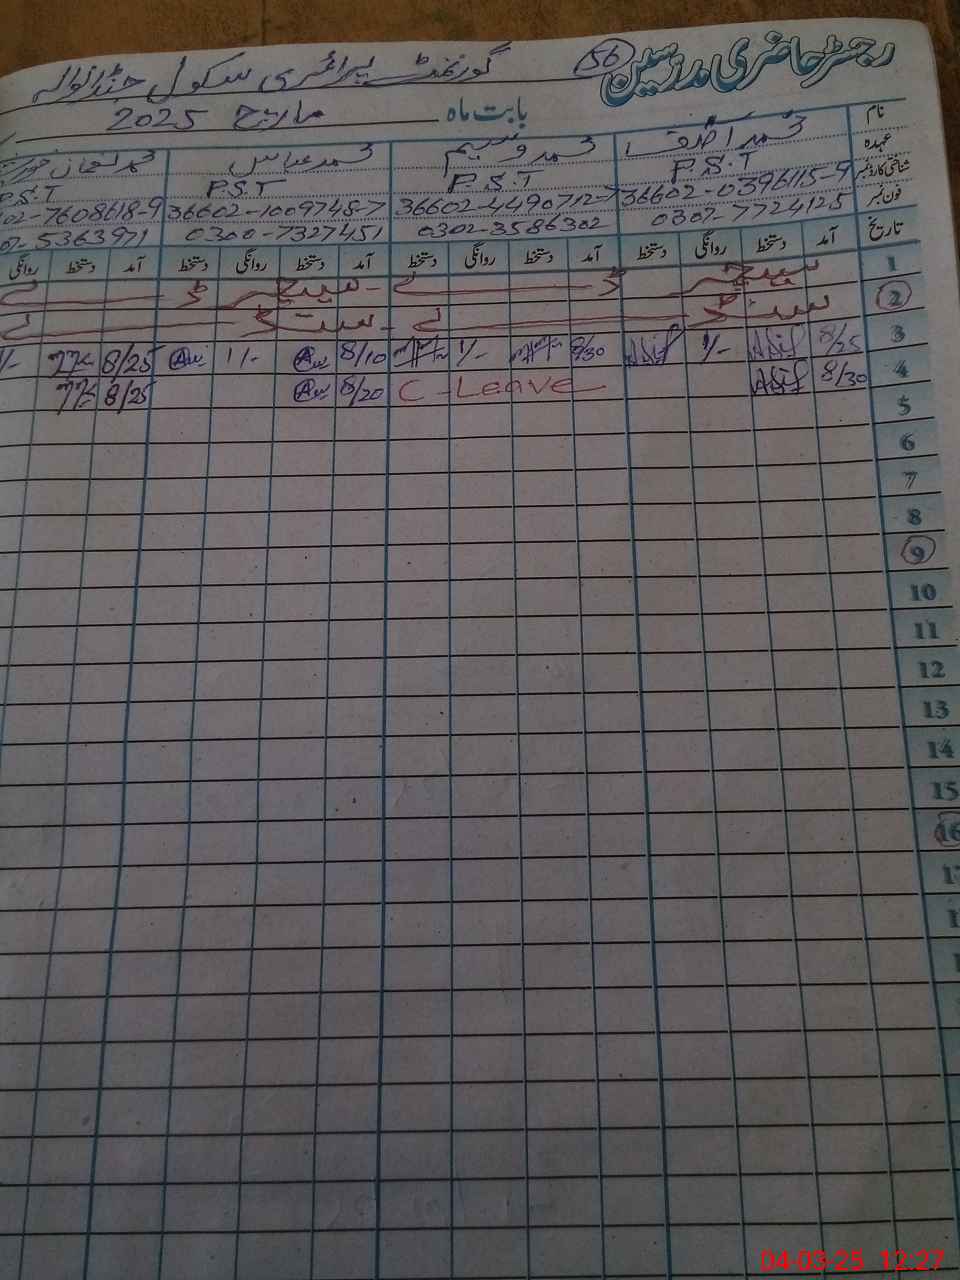 رجسٹر حاضری مدرسین 56 گورنمنٹ پرائمری سکول
بابت ماہ مارچ 2025
نام محمد آصف محمد وسیم محمد عباس محمد لقمان
عہدہ P.S.T P.S.T P.S.T P.S.T
شناختی کارڈ نمبر 36602-0396115-9 36602-4490712-7 36602-1009745-7 02-7608618-9
فون نمبر 0307-7724125 0302-3586302 0300-7327451 07-5363971
تاریخ آمد دستخط روانگی دستخط آمد دستخط روانگی دستخط آمد دستخط روانگی دستخط آمد دستخط روانگی
1 سیچر ڈے سیچر ڈے
2 سنڈے سنڈے
3 8/25 Asif 1/- Asif 8/30 1/- 8/10 1/- 8/25 1/-
4 8/30 Asif C-Leave 8/20 8/25
5
6
7
8
9
10
11
12
13
14
15
16
04-03-25 12:27